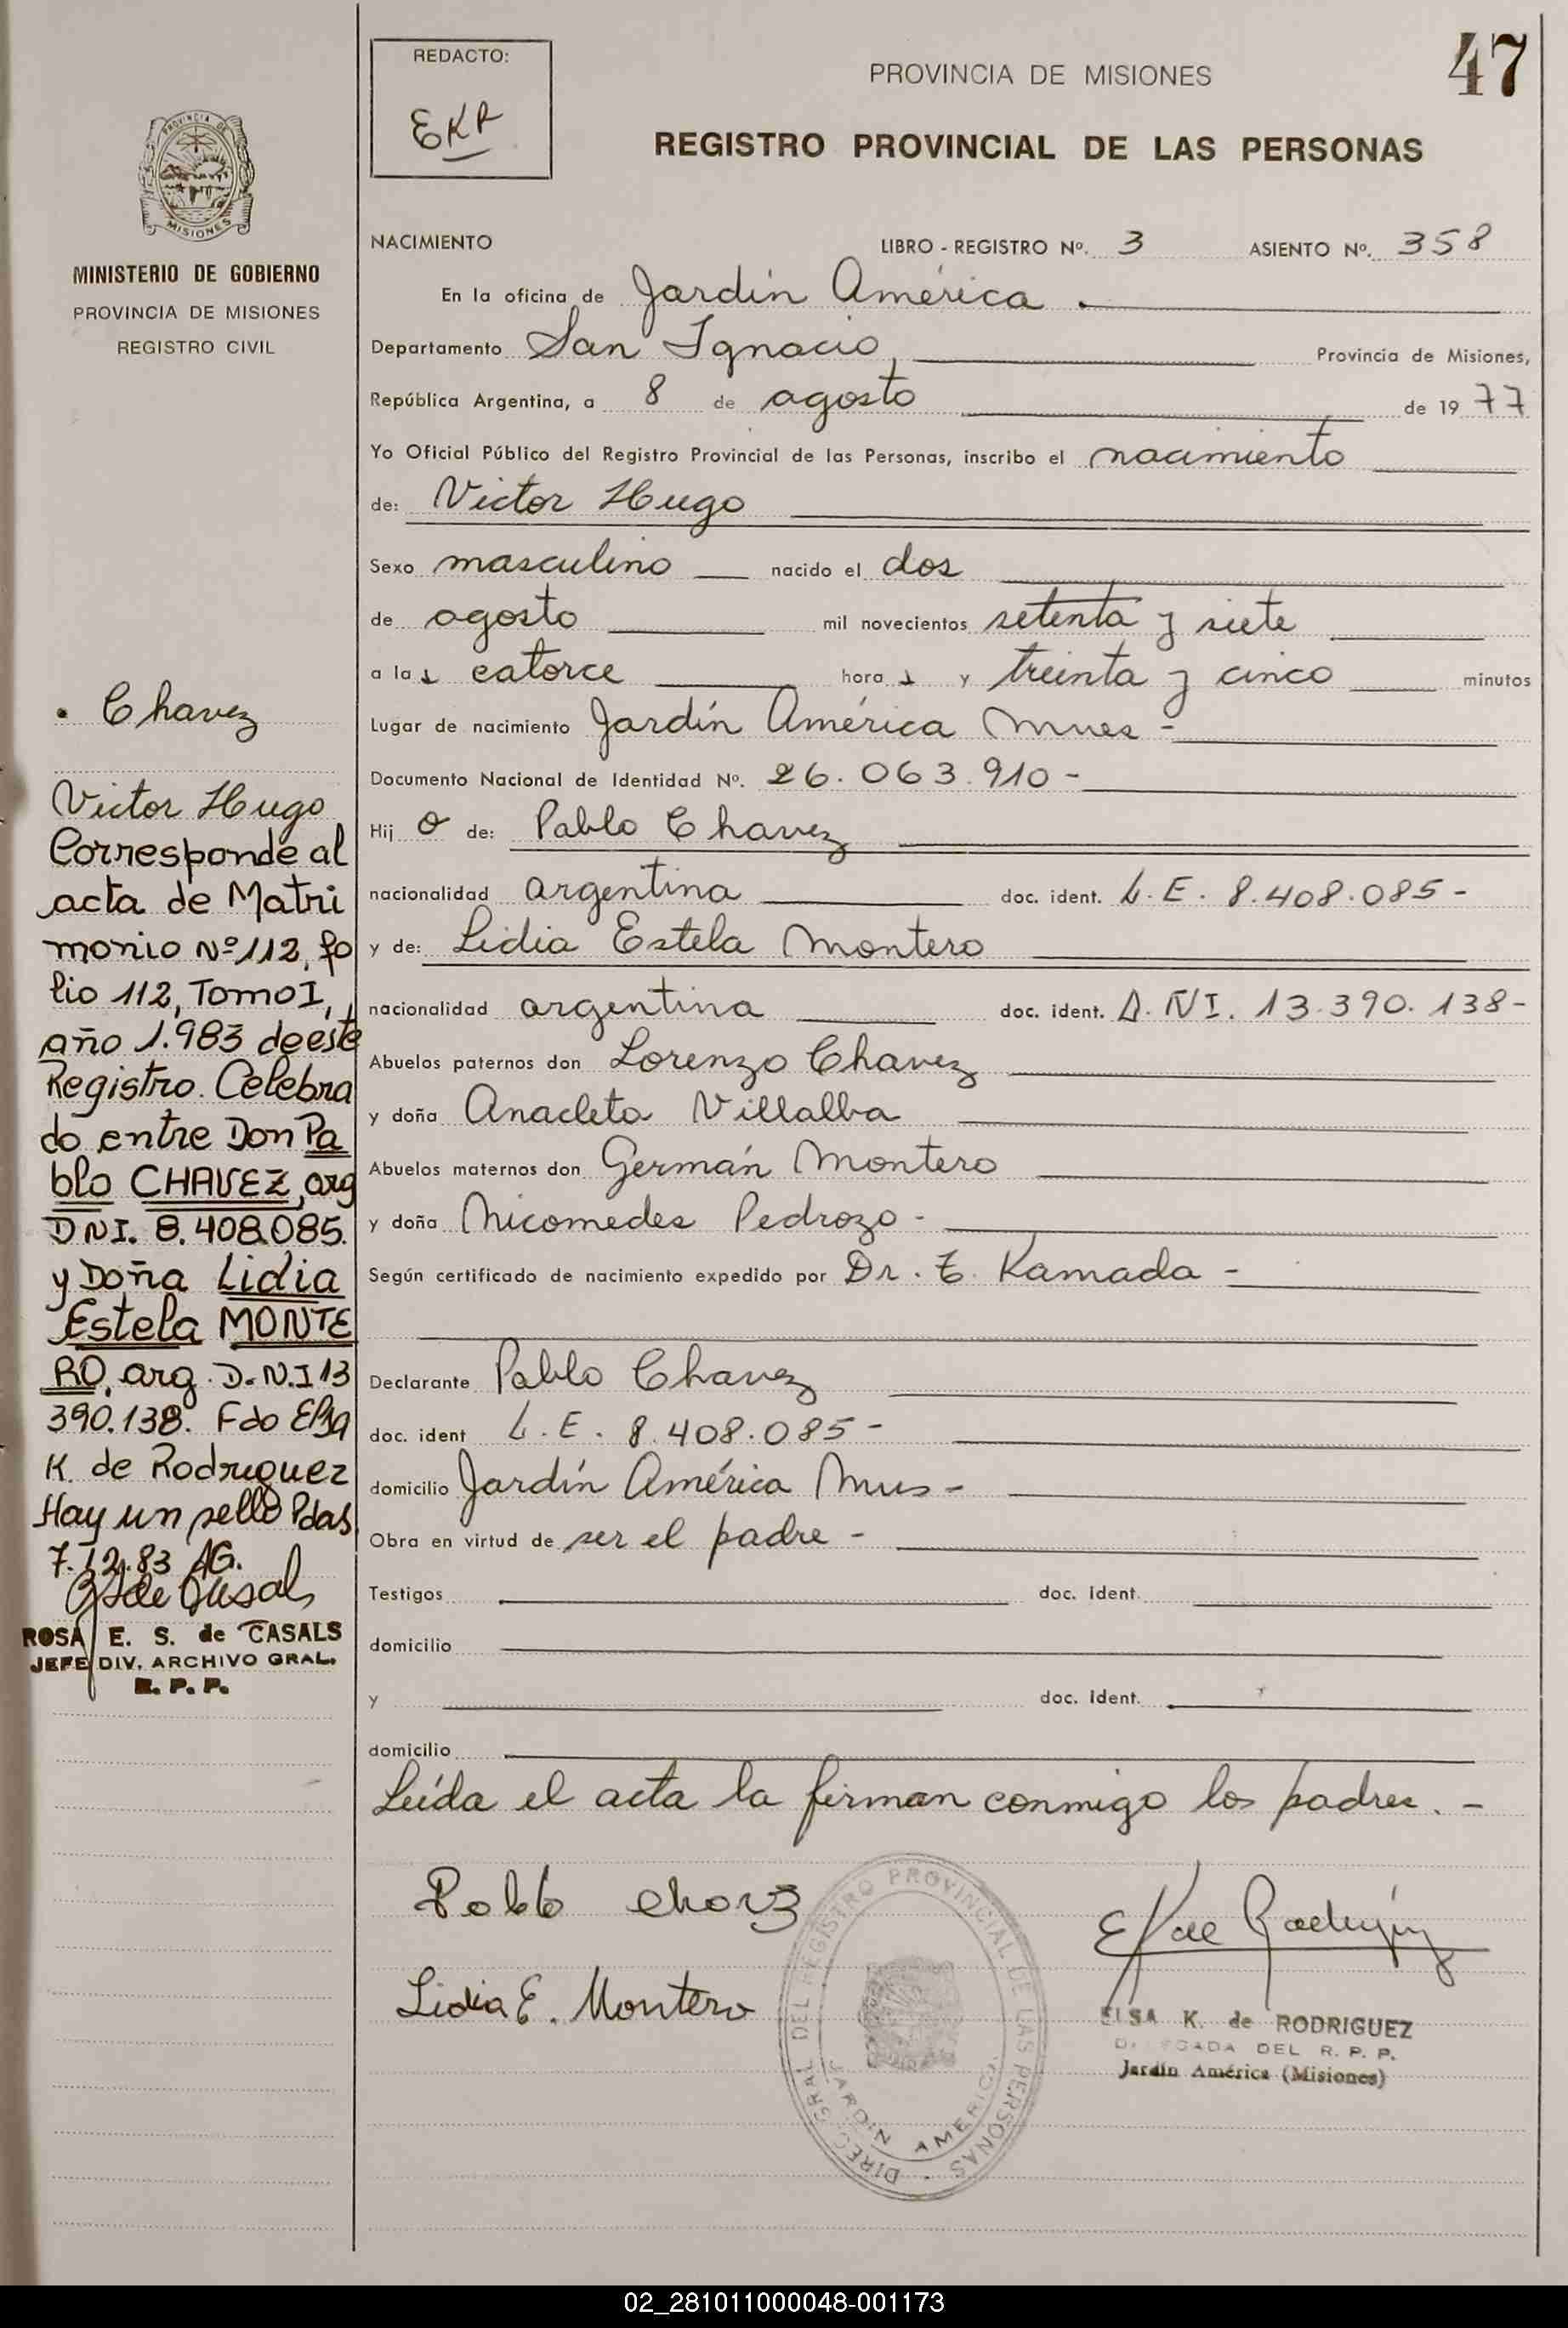 47
REDACTO:
EKR
PROVINCIA DE MISIONES
REGISTRO PROVINCIAL DE LAS PERSONAS
PROVINCIA DE
MISIONES
MINISTERIO DE GOBIERNO
PROVINCIA DE MISIONES
REGISTRO CIVIL
NACIMIENTO LIBRO - REGISTRO Nº. 3 ASIENTO Nº. 358
En la oficina de Jardín América.
Departamento San Ignacio, Provincia de Misiones,
República Argentina, a 8 de agosto de 1977
Yo Oficial Público del Registro Provincial de las Personas, inscribo el nacimiento
de: Victor Hugo
Sexo masculino nacido el dos
de agosto mil novecientos setenta y siete
a las catorce horas y treinta y cinco minutos
Lugar de nacimiento Jardín América Mnes -
Documento Nacional de Identidad Nº. 26.063.910 -
Hijo de: Pablo Chavez
nacionalidad argentina doc. ident. L.E. 8.408.085 -
y de: Lidia Estela Montero
nacionalidad argentina doc. ident. D.NI. 13.390.138 -
Abuelos paternos don Lorenzo Chavez
y doña Anacleta Villalba
Abuelos maternos don Germán Montero
y doña Nicomedes Pedrozo -
Según certificado de nacimiento expedido por Dr. Kamada -
Declarante Pablo Chavez
doc. ident L.E. 8.408.085 -
domicilio Jardín América Mnes -
Obra en virtud de ser el padre -
Testigos doc. ident.
domicilio
y doc. ident.
domicilio
Leída el acta la firman conmigo los padres. -
Pablo Chavez
Lidia E. Montero
E K de Rodriguez
ELSA K. de RODRIGUEZ
DELEGADA DEL R. P. P.
Jardín América (Misiones)
DIREC. GRAL DEL REGISTRO PROVINCIAL DE LAS PERSONAS
JARDIN AMERICA
. Chavez
Victor Hugo
Corresponde al
acta de Matri
monio Nº 112, fo
lio 112, Tomo I,
año 1.983 de este
Registro. Celebra
do entre Don Pa
blo CHAVEZ, arg
DNI. 8.408.085.
y Doña Lidia
Estela MONTE
RO, arg. D.N.I 13
390.138. Fdo Elsa
K. de Rodriguez
Hay un sello Pdas
7.12.83 AG.
ROSA E. S. de CASALS
JEFE DIV. ARCHIVO GRAL.
R. P. P.
02_281011000048-001173